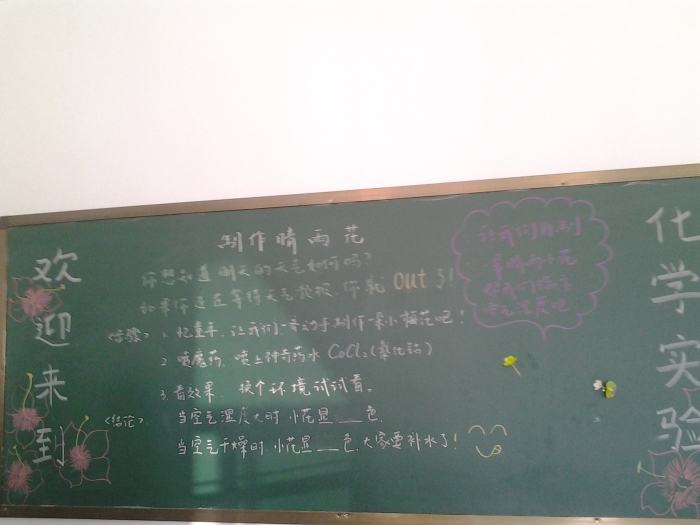 欢迎来到
制作晴雨花
你想知道明天的天气如何吗?
如果你还在等待天气预报,你就out了!
<步骤> 1.忆童年,让我们一齐动手制作一朵小梅花吧!
2.喷魔药,喷上神奇药水CoCl₂(氯化钴)
3.看效果,换个环境试试看。
<结论> 当空气湿度大时,小花显___色.
当空气干燥时,小花显___色,大家要补水了!
让我们自制
晴雨小花
化学实验